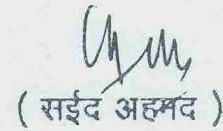 ( सईद अहमद )